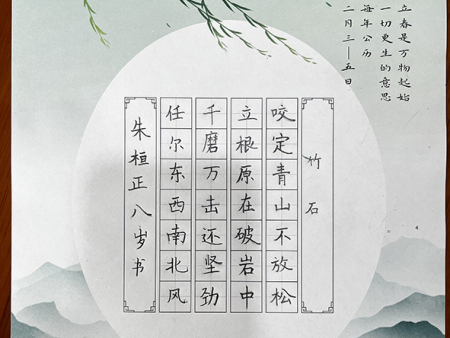 立春是万物起始
一切更生的意思
每年公历
二月三—五日
竹石
咬定青山不放松
立根原在破岩中
千磨万击还坚劲
任尔东西南北风
朱桓正八岁书